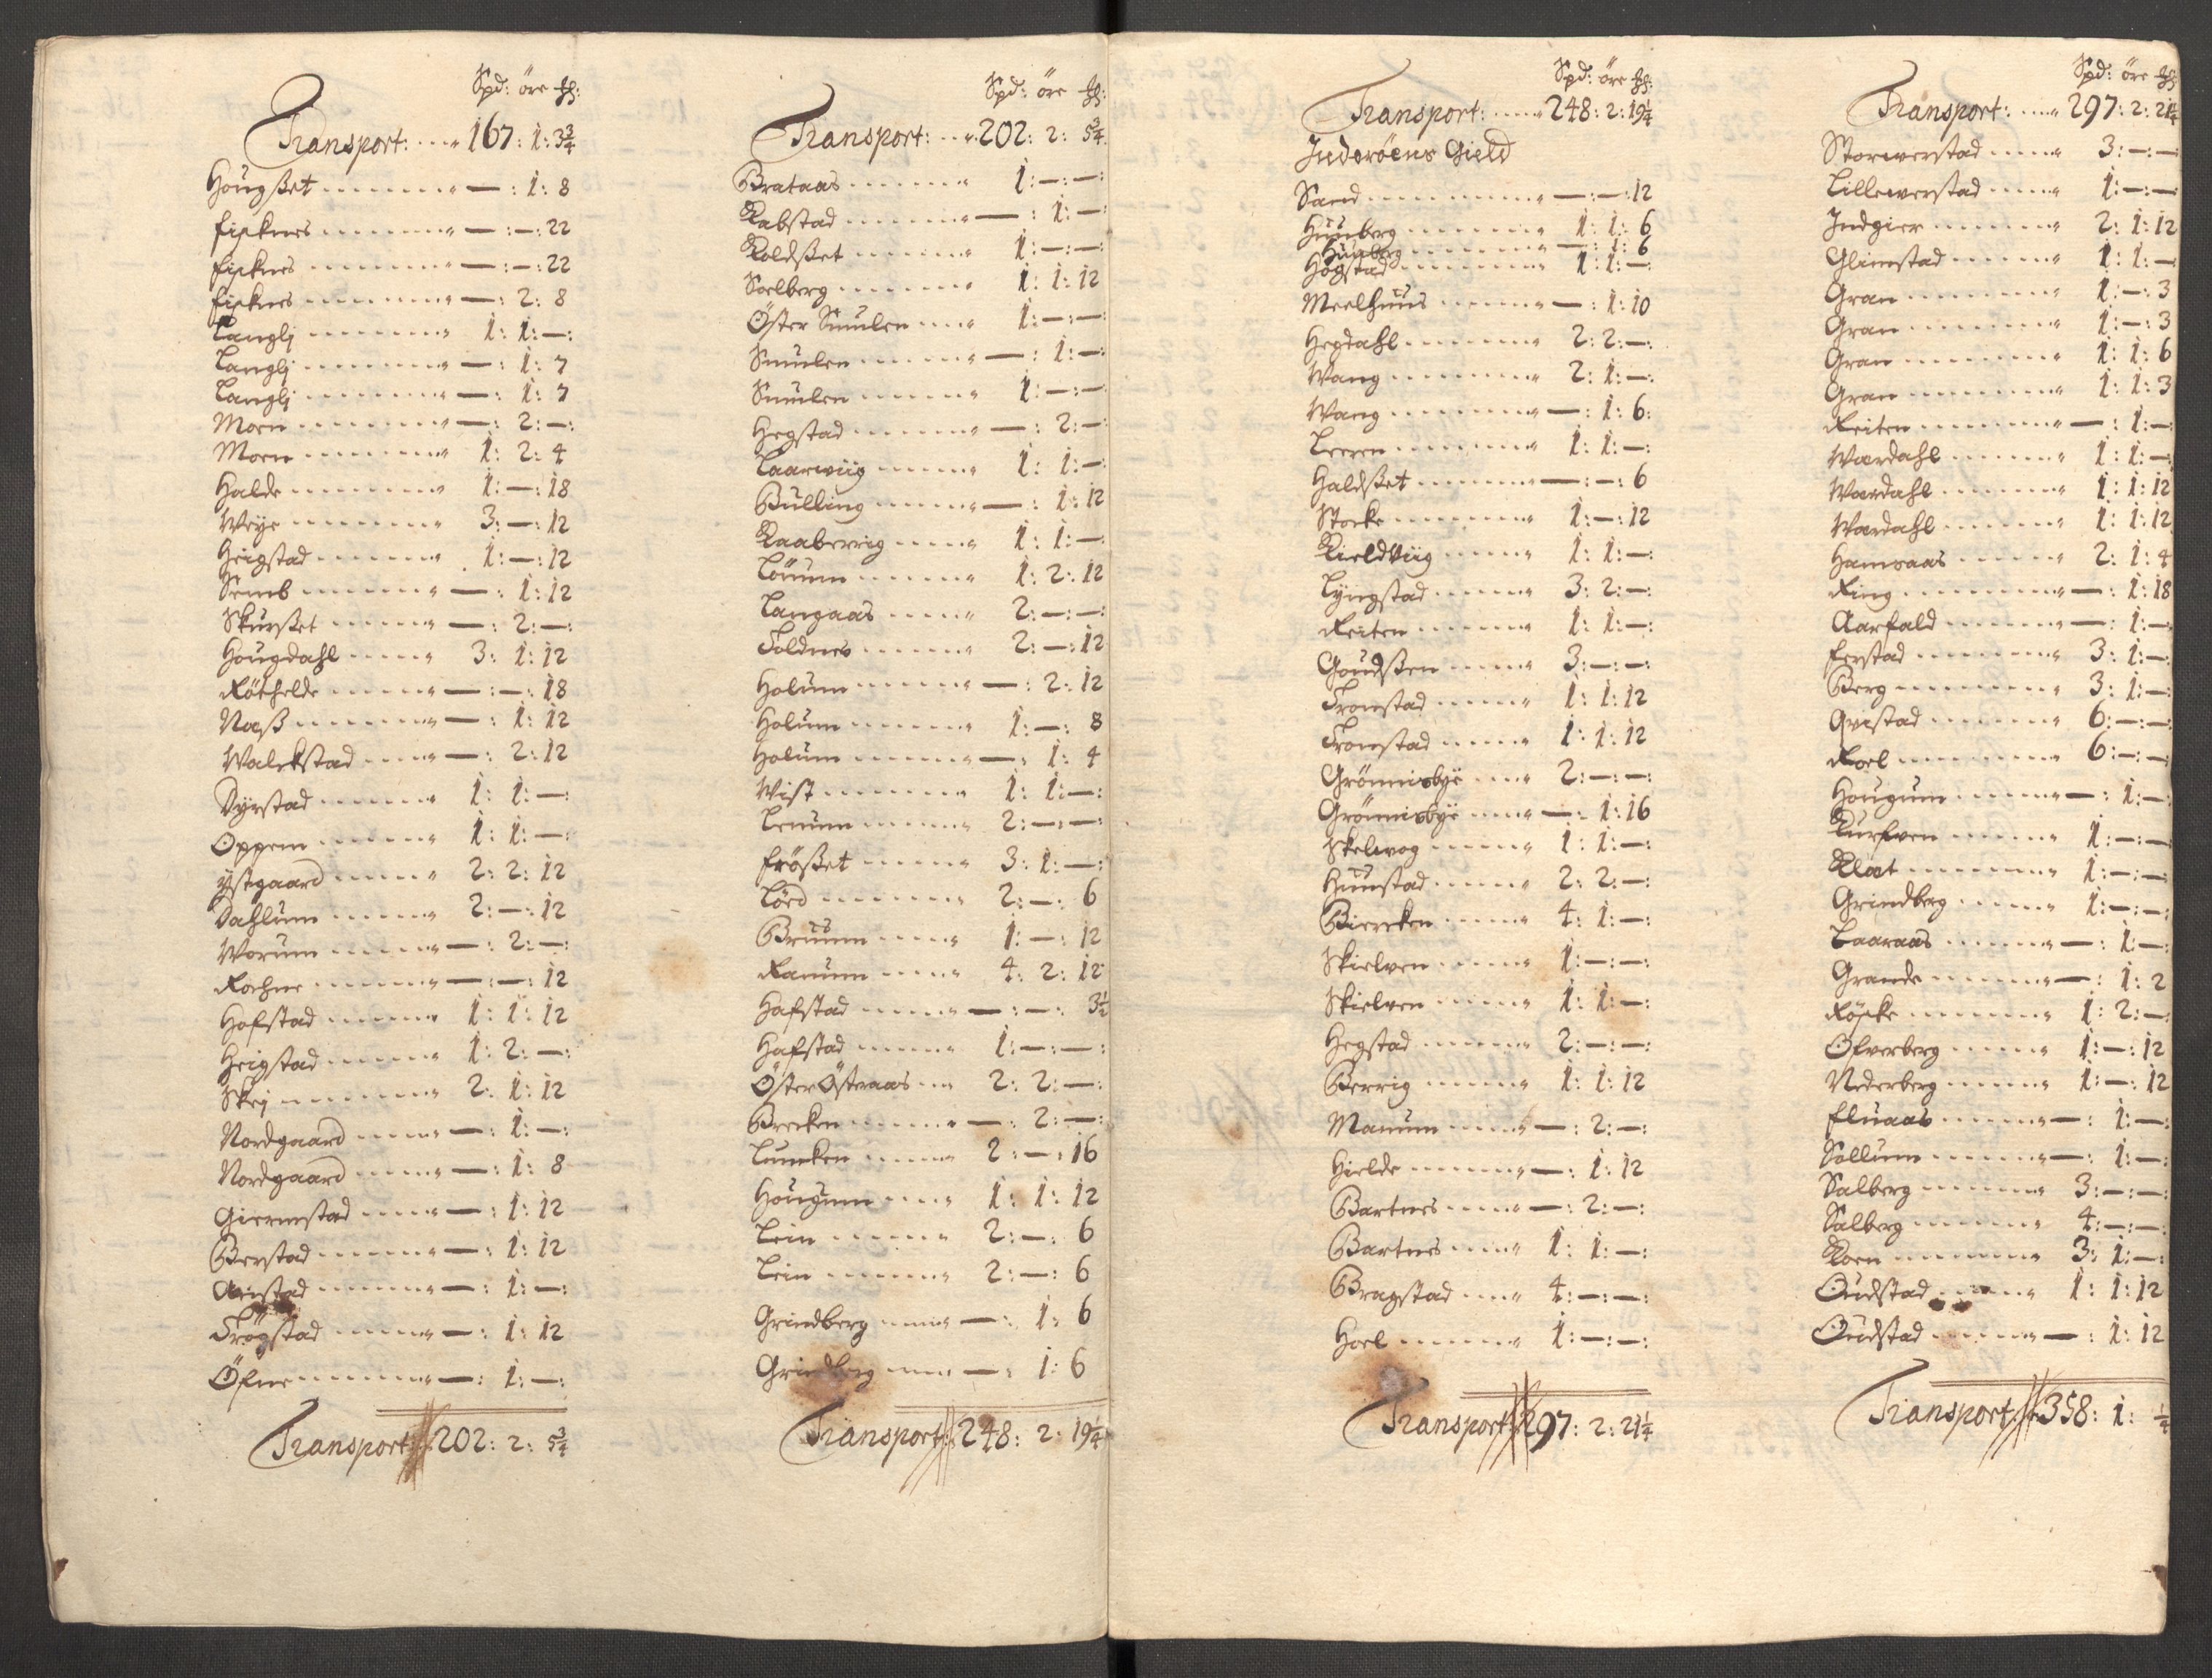 Spd: öre
Transport: 167: 1: 3¾
Hougßet — : 1: 8
Fisknes — : — : 22
Fisknes — : — : 22
Fisknes — : 2: 8
Langlj 1: 1: — :
Langlj — : 1: 7
Langlj — : 1: 7
Moen — : 2: — :
Moen 1: 2: 4
Halde 1: — : 18
Weye 3: — : 12
Heigstad 1: — : 12
Semb — : 1: 12
Skurßet — : 2: — :
Hougdahl 3: 1: 12
Röthelde — : — : 18
Naß — : 1: 12
Walekstad — : 2: 12
Dyrstad 1: 1: — :
Oppem 1: 1: — :
ystgaard 2: 2: 12
Dahlum 2: — : 12
Worum — : 2: — :
Rochne — : — : 12
Hofstad 1: 1: 12
Heigstad 1: 2: — :
Skej 2: 1: 12
Nordgaard — : 1: — :
Nordgaard — : 1: 8
Giermstad — : 1: 12
Berstad — : 1: 12
Arnstad — : 1: — :
Trögstad — : 1: 12
Öfne — : 1: — :
Transport 202: 2: 5¾
Spd: öre
Transport: 202: 2: 5¾
Brataas 1: — : — :
Rabstad — : 1: — :
Koldßet 1: — : — :
Soelberg 1: 1: 12
Öster Smulen 1: — : — :
Smulen — : 1: — :
Smulen 1: — : — :
Hegstad — : 2: — :
Laarwiig 1: 1: — :
Bulling — : 1: 12
Kaaberrig 1: 1: — :
Löuum 1: 2: 12
Langaas 2: — : — :
Foldnes 2: — : 12
Holum — : 2: 12
Holum 1: — : 8
Holum — : 1: 4
Wist 1: 1: — :
Lenum 2: — : — :
Frößet 3: 1: — :
Lörd 2: — : 6
Bruum 1: — : 12
Ranum 4: 2: 12
Hafstad — : — : 3½
Hafstad 1: — : — :
Öster Östraas 2: 2: — :
Brecken — : 2: — :
Luncken 2: — : 16
Hougum 1: 1: 12
Lein 2: — : 6
Lein 2: — : 6
Grindberg — : 1: 6
Grindberg — : 1: 6
Transport 248: 2: 19¼
Spd: öre
Transport: 248: 2: 19¼
Inderöens Gield
Sand — : — : 12
Huuberg 1: 1: 6
Huuberg — : 1: 6
Högstad 1: 1: — :
Meelhuus — : 1: 10
Hegdahl 2: 2: — :
Wang 2: 1: — :
Wang — : 1: 6:
Leeren 1: 1: — :
Haldßet — : — : 6
Stocke 1: — : 12
Kieldviig 1: 1: — :
Lyngstad 3: 2: — :
Reiten 1: 1: — :
Goudsten 3: — : — :
Tronstad 1: 1: 12
Tronstad 1: 1: 12
Grönnisbye 2: — : — :
Grönnisbye — : 1: 16
Skelwog 1: 1: — :
Huustad 2: 2: — :
Biercken 4: 1: — :
Skielven 1: — : — :
Skielven 1: 1: — :
Hegstad 2: — : — :
Berrig 1: 1: 12
Manum — : 2: — :
Hielde — : 1: 12
Bartnes — : 2: — :
Bartnes 1: 1: — :
Bragstad 4: — : — :
Hoel 1: — : — :
Transport 297: 2: 21¼
Spd: öre
Transport: 297: 2: 21¼
Storwerstad 3: — : —
Lillewerstad 1: — : —
Indgier 2: 1: 12
Glimstad 1: 1: —
Gran 1: — : 3
Gran 1: — : 3
Gran 1: 1: 6
Gran 1: 1: 3
Reiten — : 1: —
Wardahl 1: 1: —
Wardahl 1: 1: 12
Wardahl 1: 1: 12
Hamraas 2: 1: 4
Ring — : 1: 18
Aarfald — : 1: —
Ferstad 3: 1: —
Berg 3: 1: —
Qvistad 6: — : —
Roel 6: — : —
Hougum — : 1: —
Kurfven 1: — : —
Klæt 1: — : —
Grindberg 1: — : —
Laaraas — : 1: —
Grande — : 1: 2
Röske 1: 2: —
Ofverberg 1: — : 12
Nederberg 1: — : 12
Fluaas — : 1: —
Sollum — : 1: —
Salberg 3: — : —
Salberg 4: — : —
Koen 3: 1: —
Oudstad 1: 1: 12
Oudstad — : 1: 12
Transport 358: 1: ¼